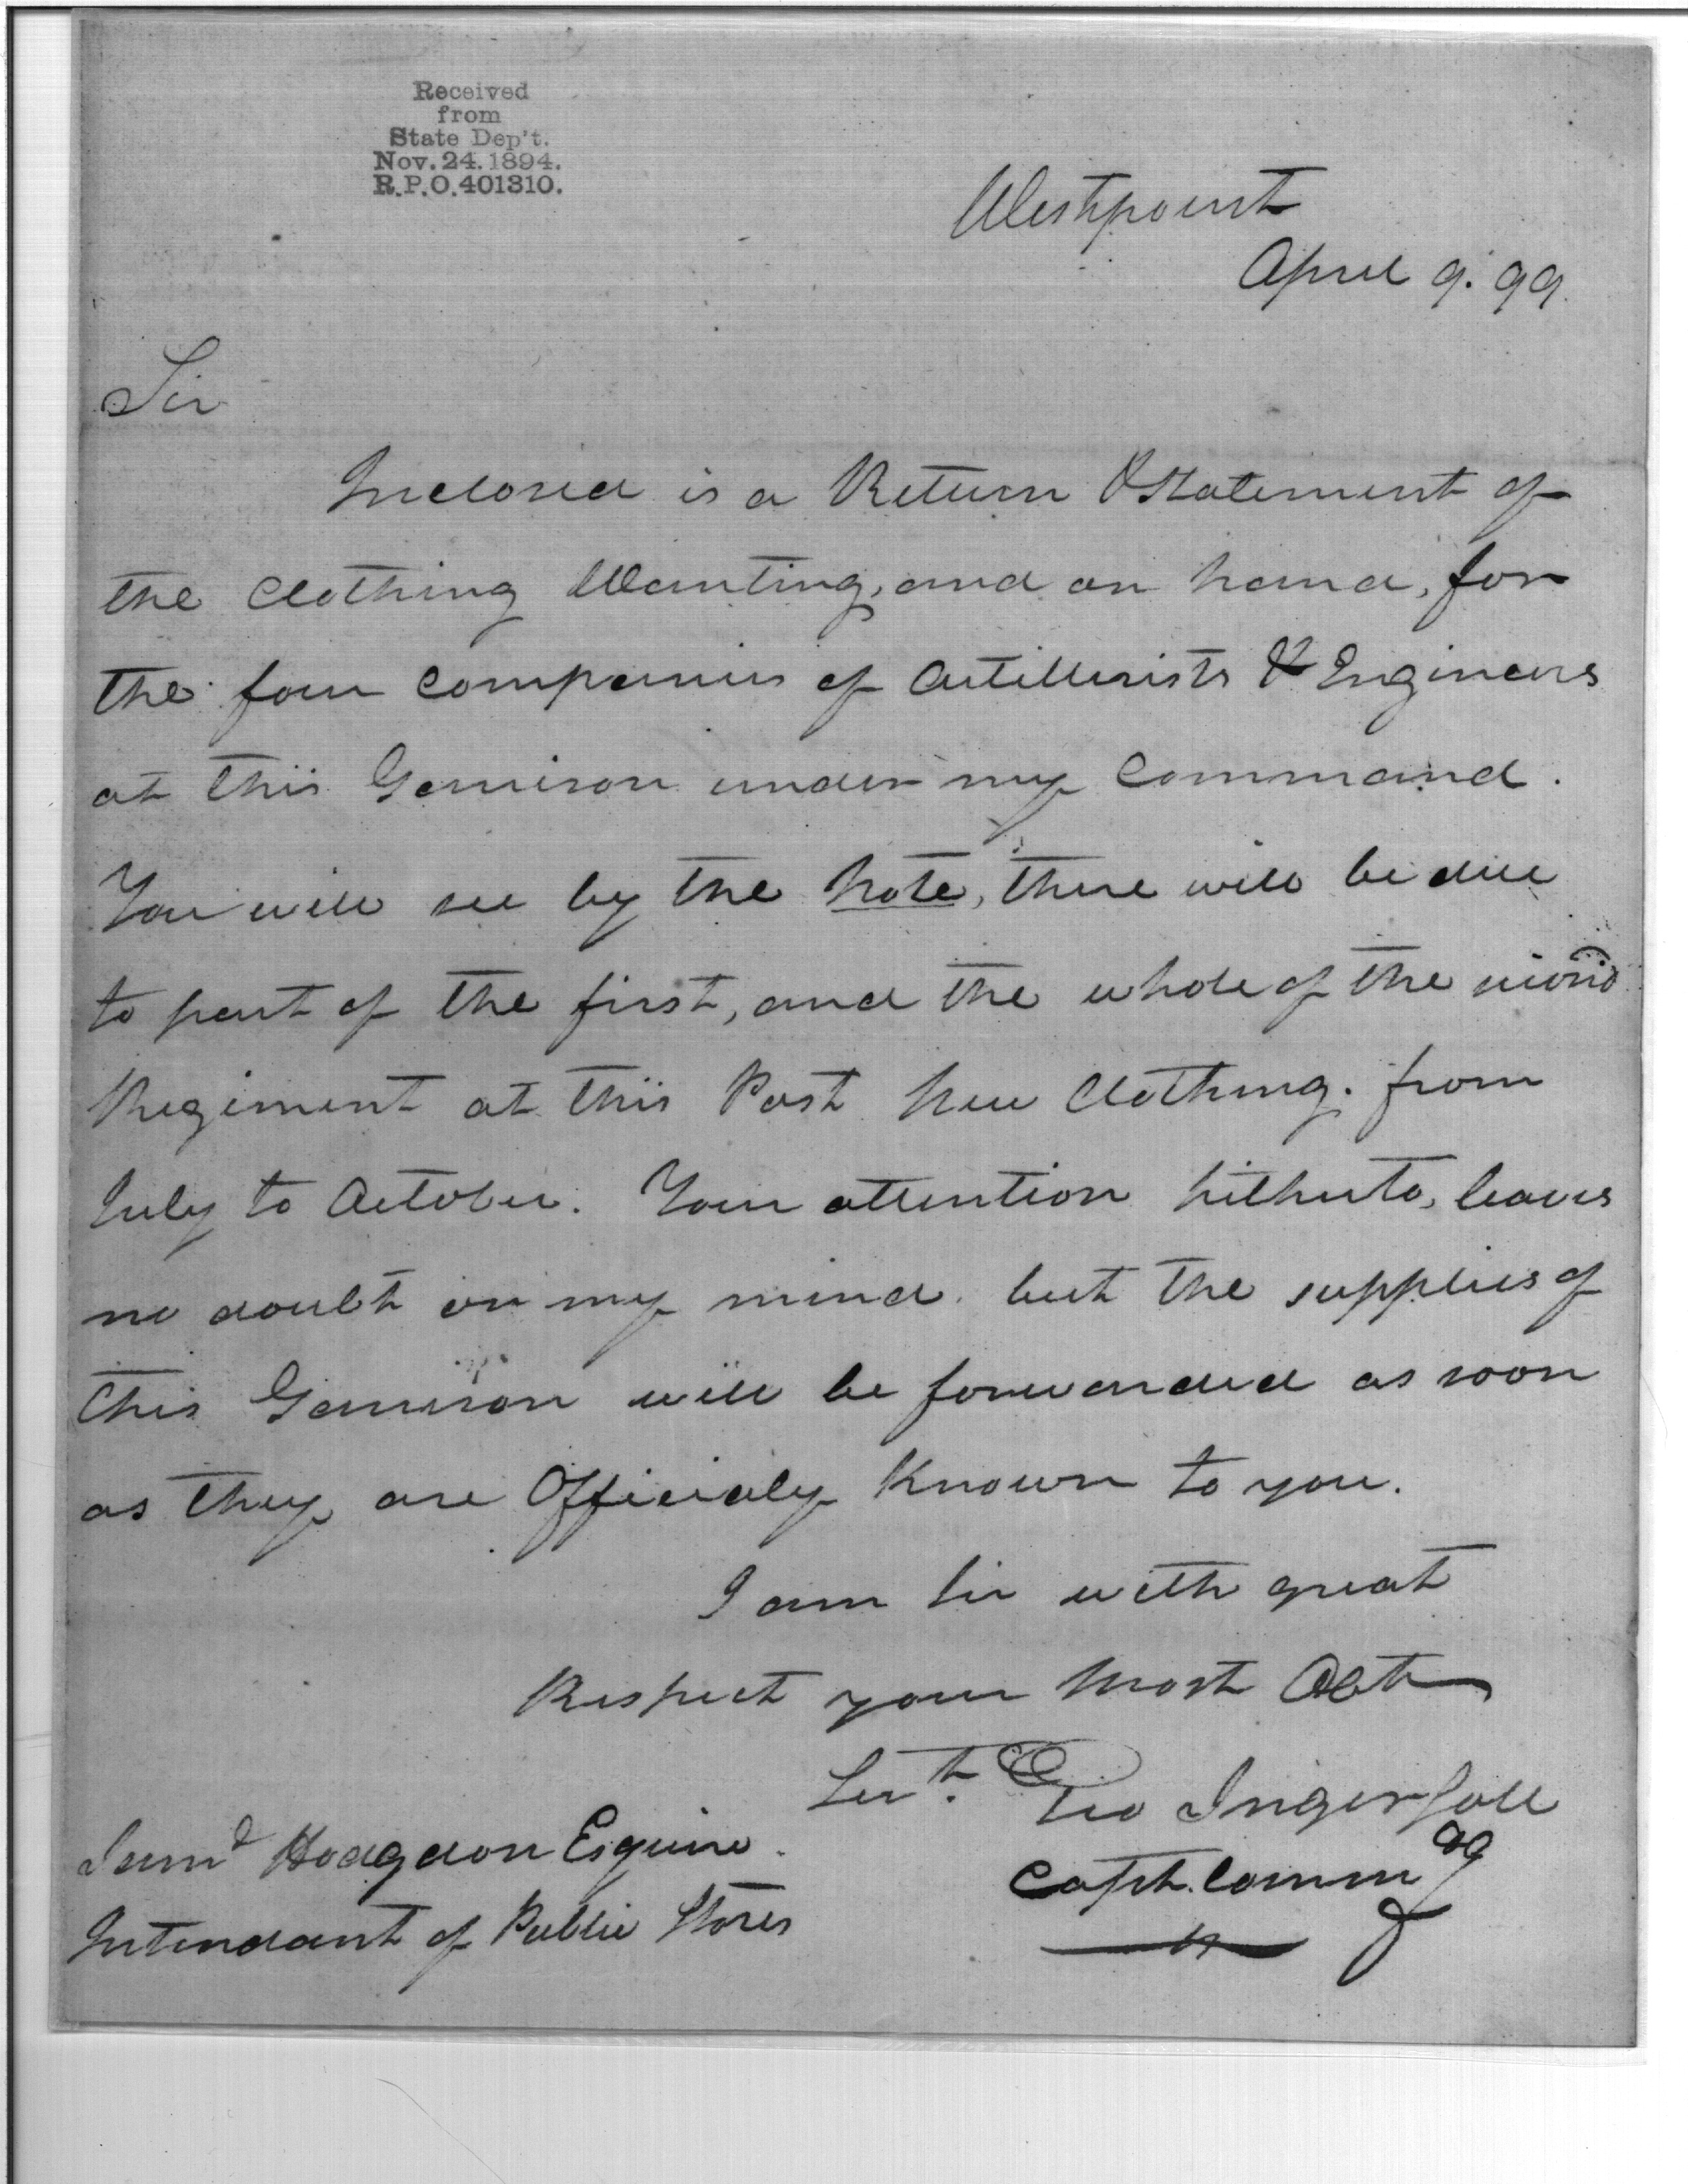 Received
from
State Dep't.
Nov. 24. 1894.
R.P.O. 401310.
Westpoint
April 9. 99.
Sir
Inclosed is a Return & Statement of
the Clothing Wanting, and on hand, for
the four Companies of Artillerists & Engineers
at this Garrison under my Command.
You will see by the Note, there will be due
to part of the first, and the whole of the
Regiment at this Post New Clothing. from
July to October. Your attention hitherto, leaves
no doubt on my mind. but the supplies of
this Garrison will be forwarded as soon
as they are Officialy Known to you.
I am Sir with great
Respect your Most Obt
Servt. Geo Ingersoll
Capt. Commdg
Saml Hodgdon Esquire.
Intendant of Public Stores